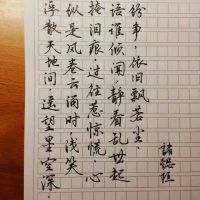 浮散天地间，遥望星空深．
纵是风卷云涌时，浅笑
掩泪痕．过往惹惊慌，心
语谁倾闻，静看乱世起
纷争，依旧飘若尘．
諸